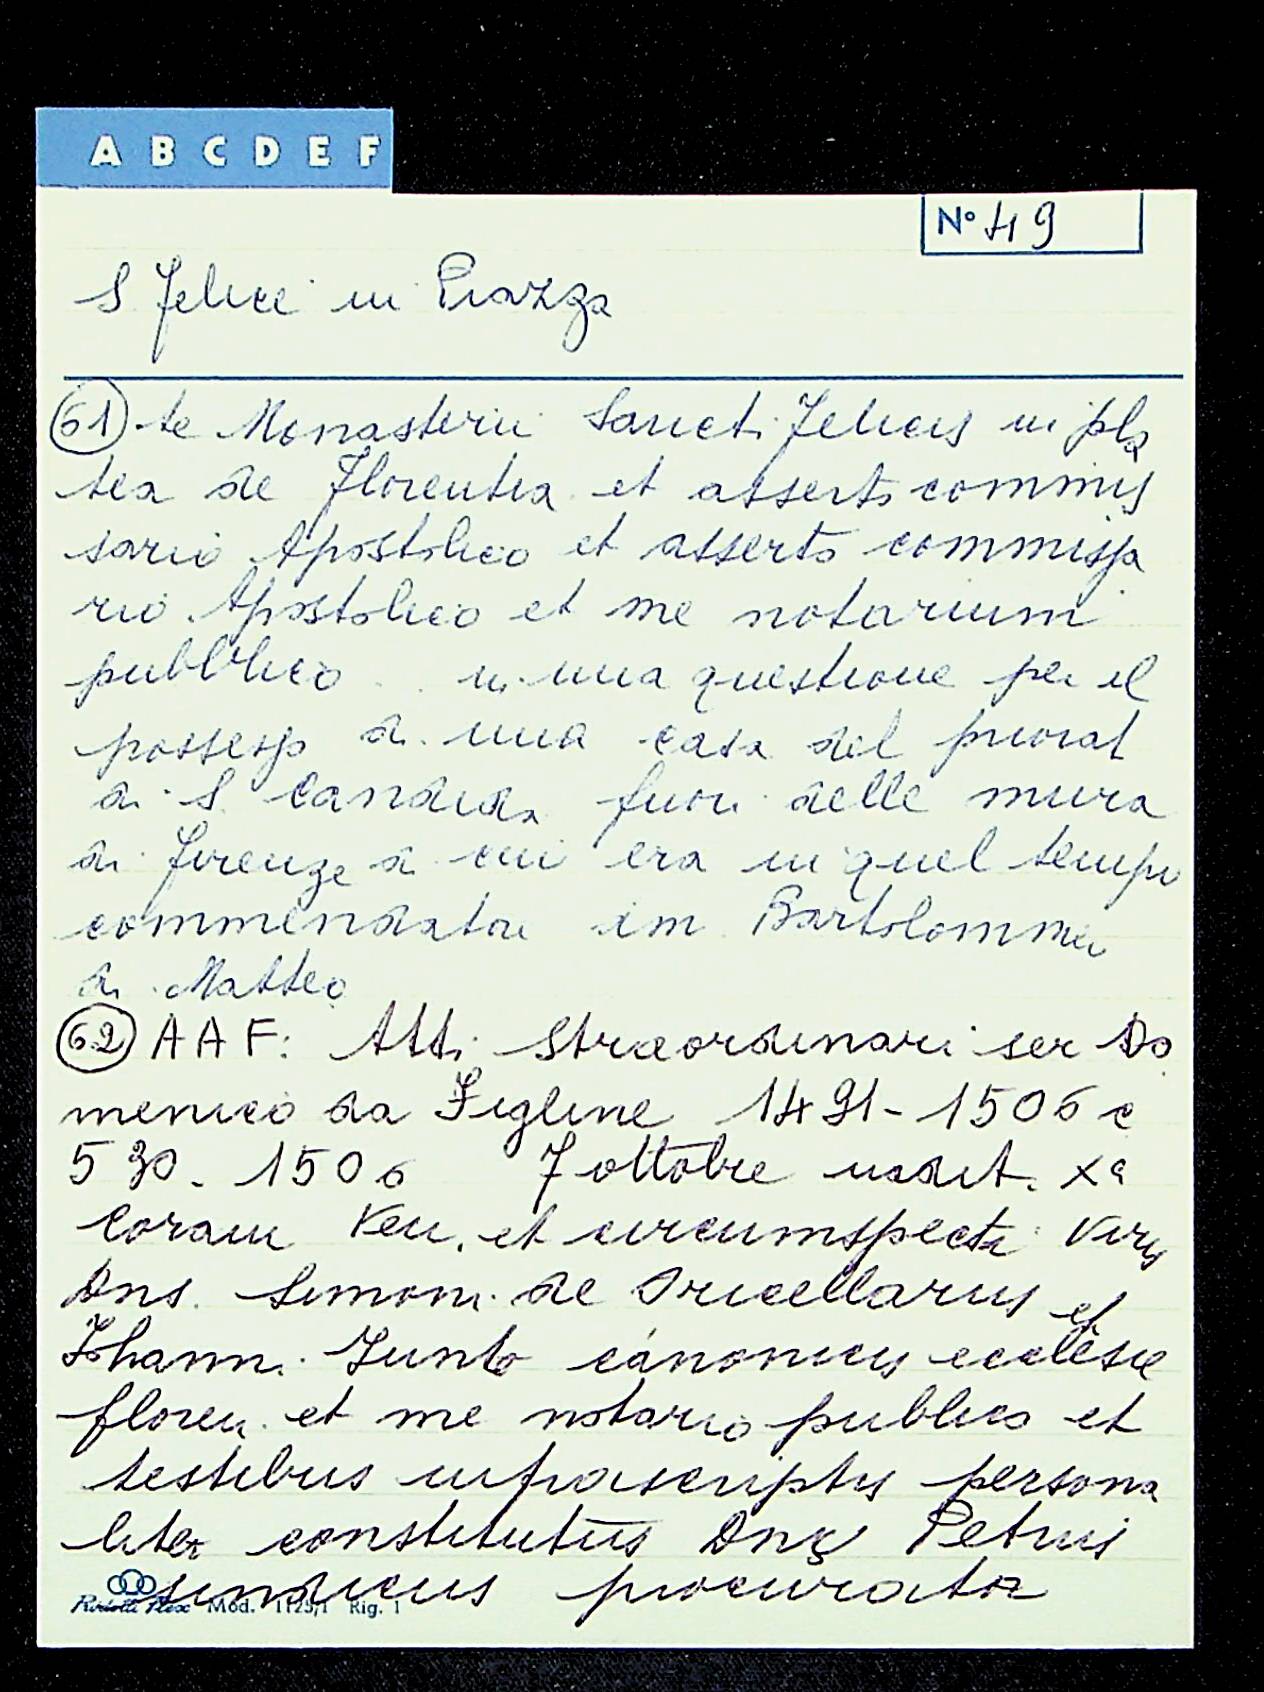 A B C D E F
Nº 49
S Felice in Piazza
61) te Monasterii Sancti Felicis in pla
tea de Florentia et asserto commis
sario Apostolico et asserto commissa
rio Apostolico et me notarium
pubblico .. in una questione per il
possesso di una casa del priorat
di S Candida fuori delle mura
di Firenze di cui era in quel tempo
commendatore Bartolommeo
di Matteo
62) A A F: Atti Straordinari ser Do
menico da Figline 1491-1506 c
530. 1506 7 ottobre indit. Xª
Coram Ven. et circumspecti Viris
Dns. Simoni de Oricellariis et
Johann. Junto canonicis ecclesie
floren. et me notario publico et
testibus infrascriptis persona
liter constitutus Dns Petrus
sindicus procurator
Mod. 1125/1 Rig. 1